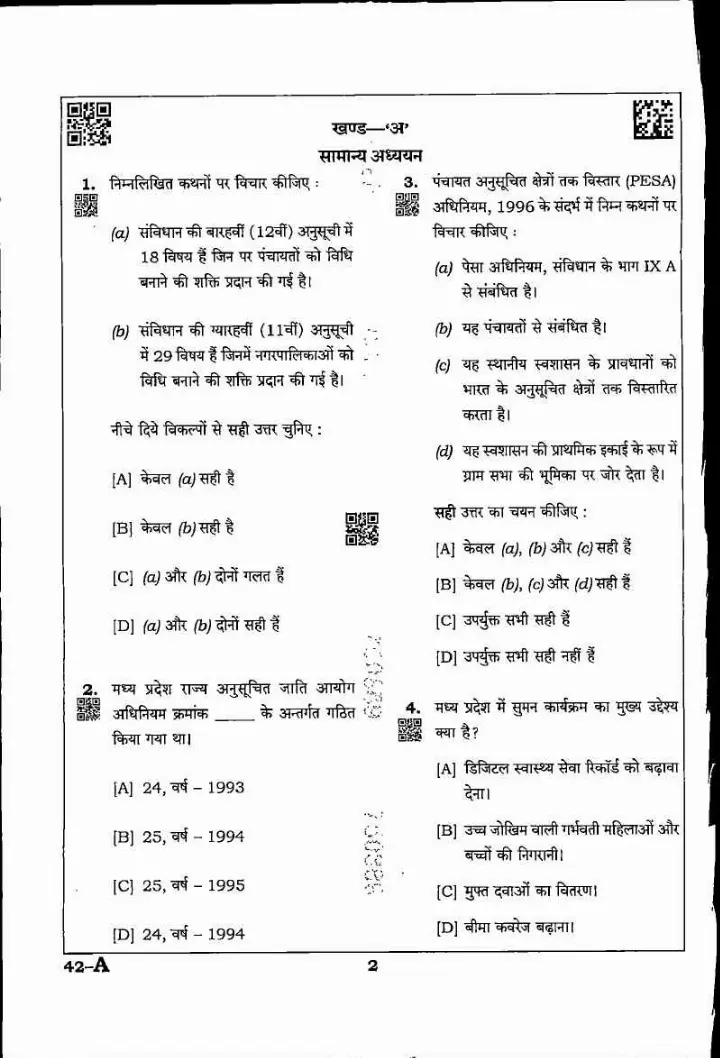 खण्ड—‘अ’
सामान्य अध्ययन
1. निम्नलिखित कथनों पर विचार कीजिए :
(a) संविधान की बारहवीं (12वीं) अनुसूची में
18 विषय हैं जिन पर पंचायतों को विधि
बनाने की शक्ति प्रदान की गई है।
(b) संविधान की ग्यारहवीं (11वीं) अनुसूची
में 29 विषय हैं जिनमें नगरपालिकाओं को
विधि बनाने की शक्ति प्रदान की गई है।
नीचे दिये विकल्पों से सही उत्तर चुनिए :
[A] केवल (a) सही है
[B] केवल (b) सही है
[C] (a) और (b) दोनों गलत हैं
[D] (a) और (b) दोनों सही हैं
2. मध्य प्रदेश राज्य अनुसूचित जाति आयोग
अधिनियम क्रमांक _____ के अन्तर्गत गठित
किया गया था।
[A] 24, वर्ष – 1993
[B] 25, वर्ष – 1994
[C] 25, वर्ष – 1995
[D] 24, वर्ष – 1994
3. पंचायत अनुसूचित क्षेत्रों तक विस्तार (PESA)
अधिनियम, 1996 के संदर्भ में निम्न कथनों पर
विचार कीजिए :
(a) पेसा अधिनियम, संविधान के भाग IX A
से संबंधित है।
(b) यह पंचायतों से संबंधित है।
(c) यह स्थानीय स्वशासन के प्रावधानों को
भारत के अनुसूचित क्षेत्रों तक विस्तारित
करता है।
(d) यह स्वशासन की प्राथमिक इकाई के रूप में
ग्राम सभा की भूमिका पर जोर देता है।
सही उत्तर का चयन कीजिए :
[A] केवल (a), (b) और (c) सही हैं
[B] केवल (b), (c) और (d) सही हैं
[C] उपर्युक्त सभी सही हैं
[D] उपर्युक्त सभी सही नहीं हैं
4. मध्य प्रदेश में सुमन कार्यक्रम का मुख्य उद्देश्य
क्या है?
[A] डिजिटल स्वास्थ्य सेवा रिकॉर्ड को बढ़ावा
देना।
[B] उच्च जोखिम वाली गर्भवती महिलाओं और
बच्चों की निगरानी।
[C] मुफ्त दवाओं का वितरण।
[D] बीमा कवरेज बढ़ाना।
42–A
2